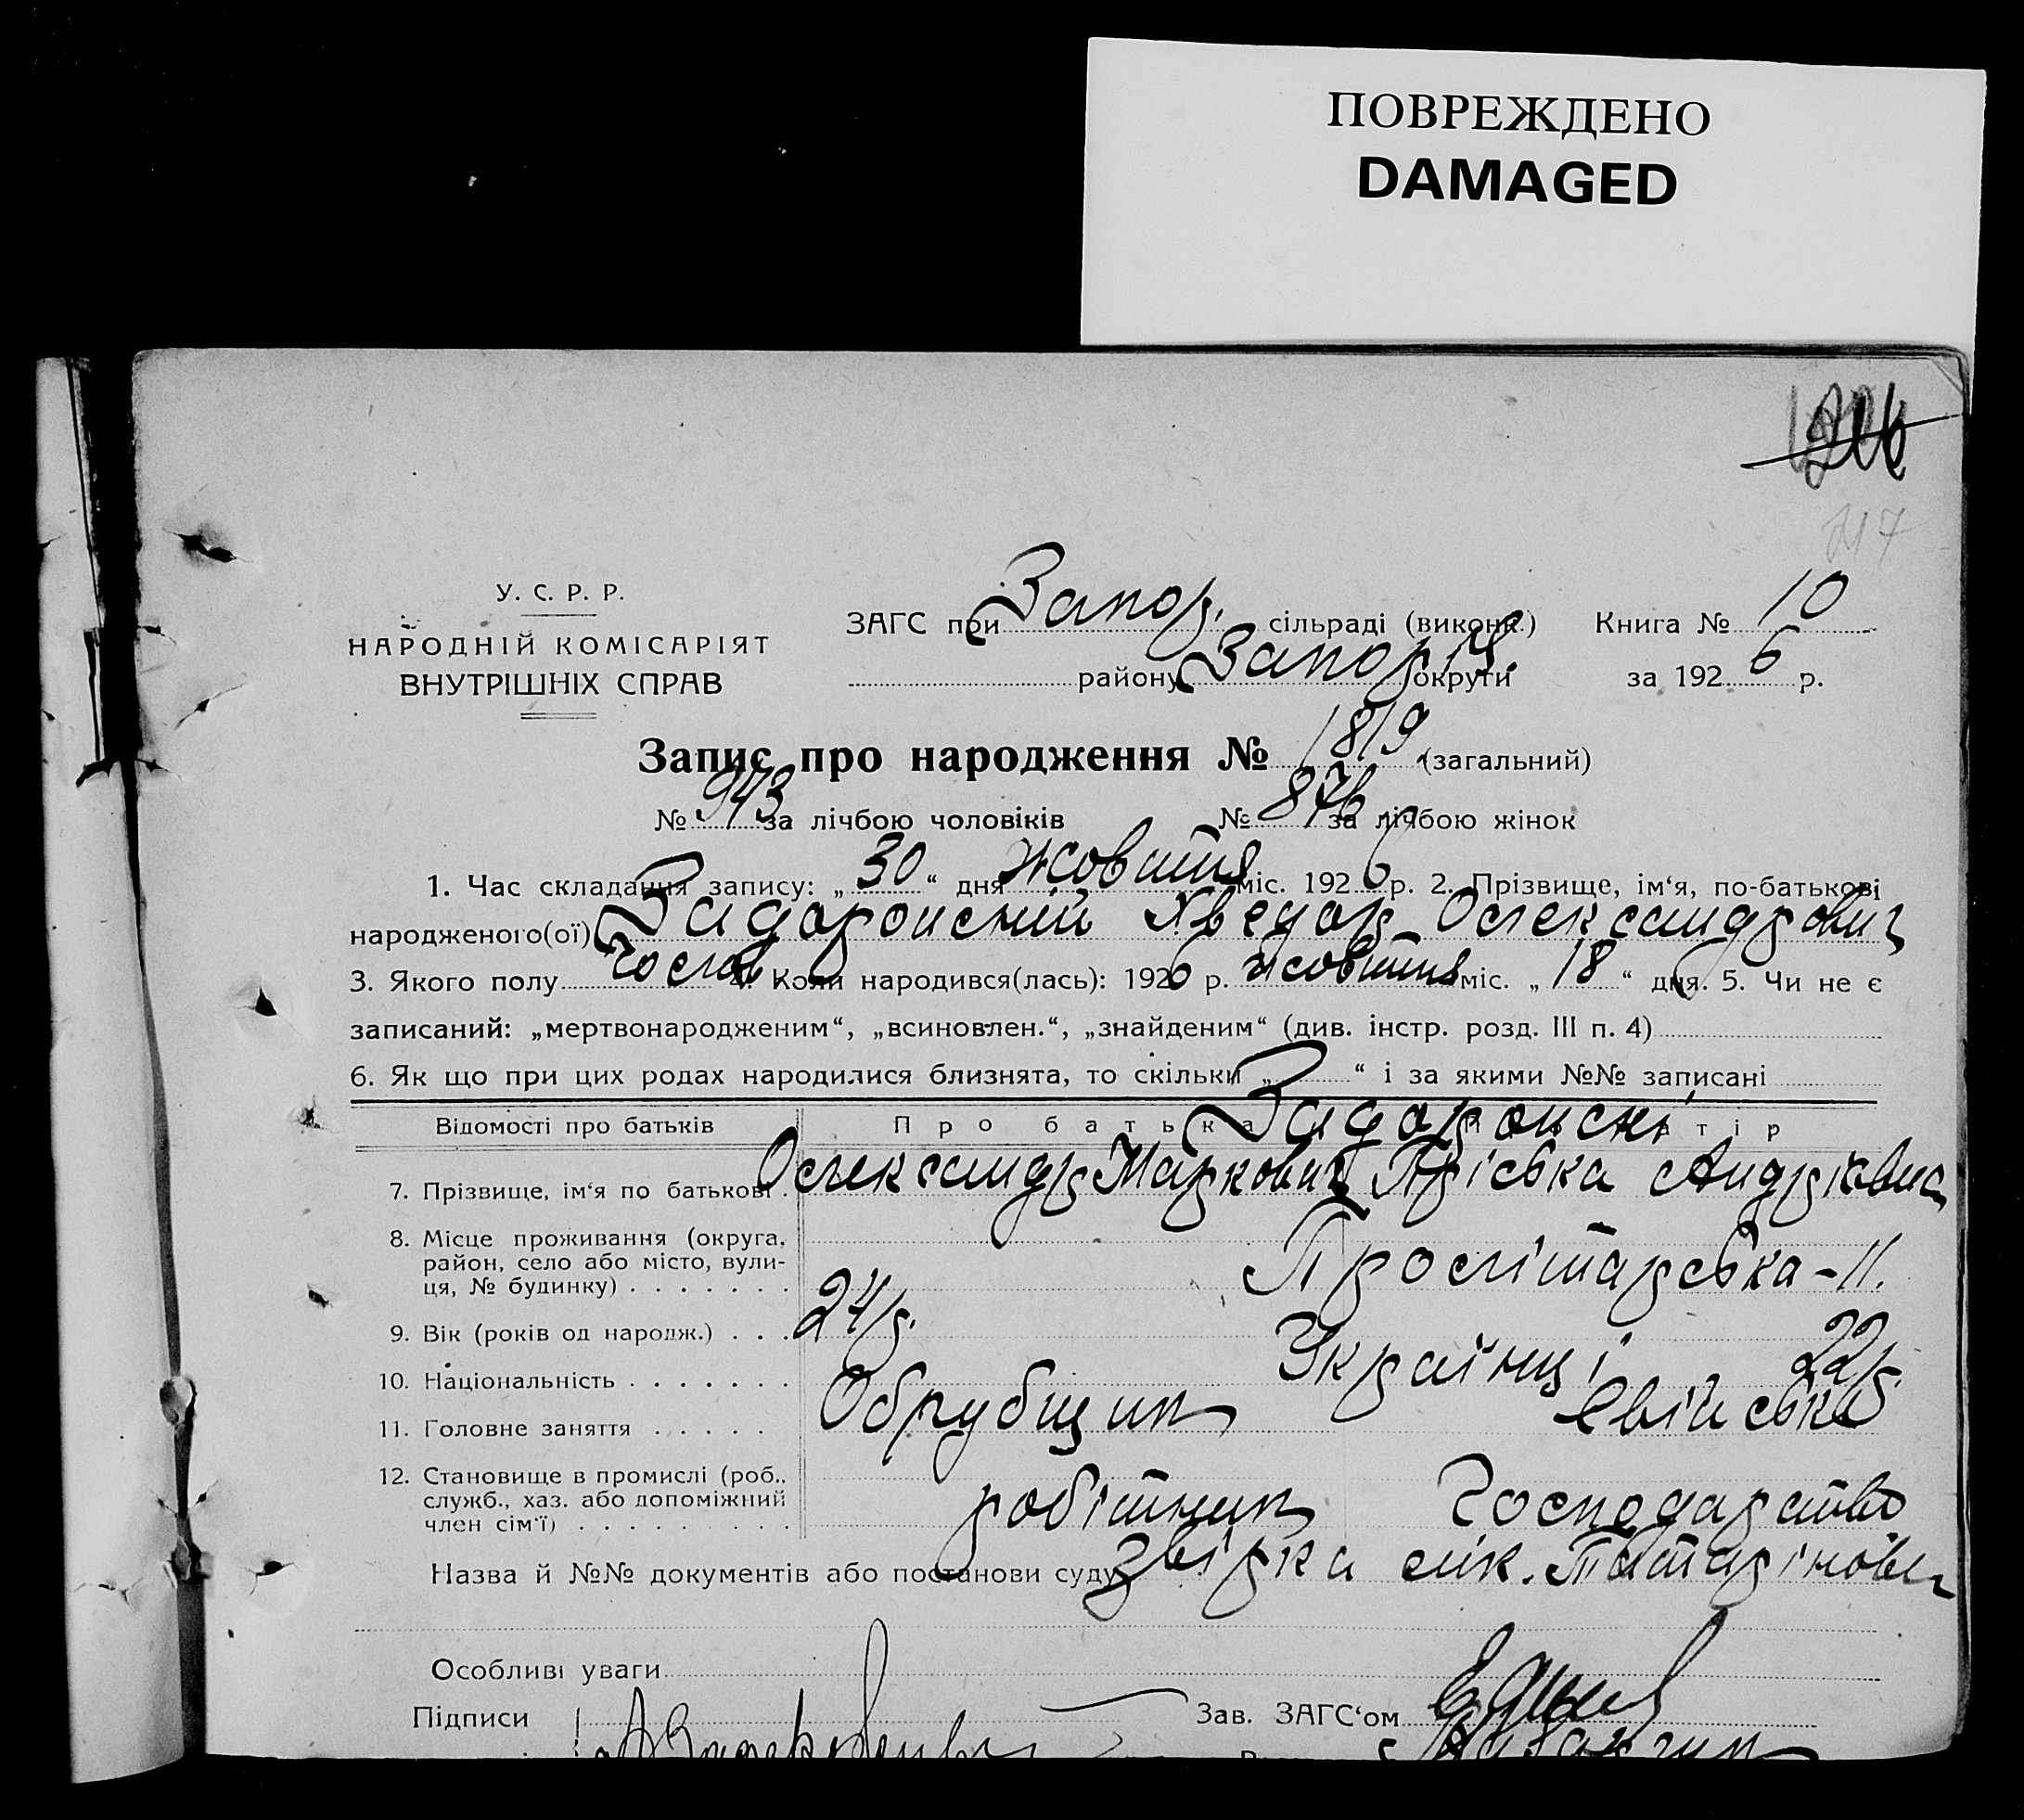 ПОВРЕЖДЕНО
DAMAGED
217
У. С. Р. Р.
НАРОДНІЙ КОМІСАРІЯТ
ВНУТРІШНІХ СПРАВ
ЗАГС при Запор. сільраді (викона.) Книга № 10
району Запоріз. округи за 1926 р.
Запис про народження № 1819 (загальний)
№ 943 за лічбою чоловіків № 876 за лічбою жінок
1. Час складання запису: „30“ дня жовтня міс. 1926 р. 2. Прізвище, ім‘я, по-батькові
народженого(ої) Задоронсний Хведор Олександрович
3. Якого полу чолов 4. Коли народився(лась): 1926 р. жовтня міс. „18“ дня. 5. Чи не є
записаний: „мертвонародженим“, „всиновлен.“, „знайденим“ (див. інстр. розд. III п. 4)
6. Як що при цих родах народилися близнята, то скільки „ “ і за якими №№ записані
Відомості про батьків Про батька Задоронсні матір
7. Прізвище, ім‘я по батькові Олександр Маркович Пріська Андріївна
8. Місце проживання (округа,
район, село або місто, вули-
ця, № будинку) Пролітарська - 11.
9. Вік (років од народж.) 24р. 22р.
10. Національність Українці
11. Головне заняття Обрубщик Свійське
12. Становище в промислі (роб.,
служб., хаз. або допоміжний
член сім‘ї) робітник Господарство
Назва й №№ документів або постанови суду Звірка лік. Татарінови
Особливі уваги
Підписи Зав. ЗАГС‘ом